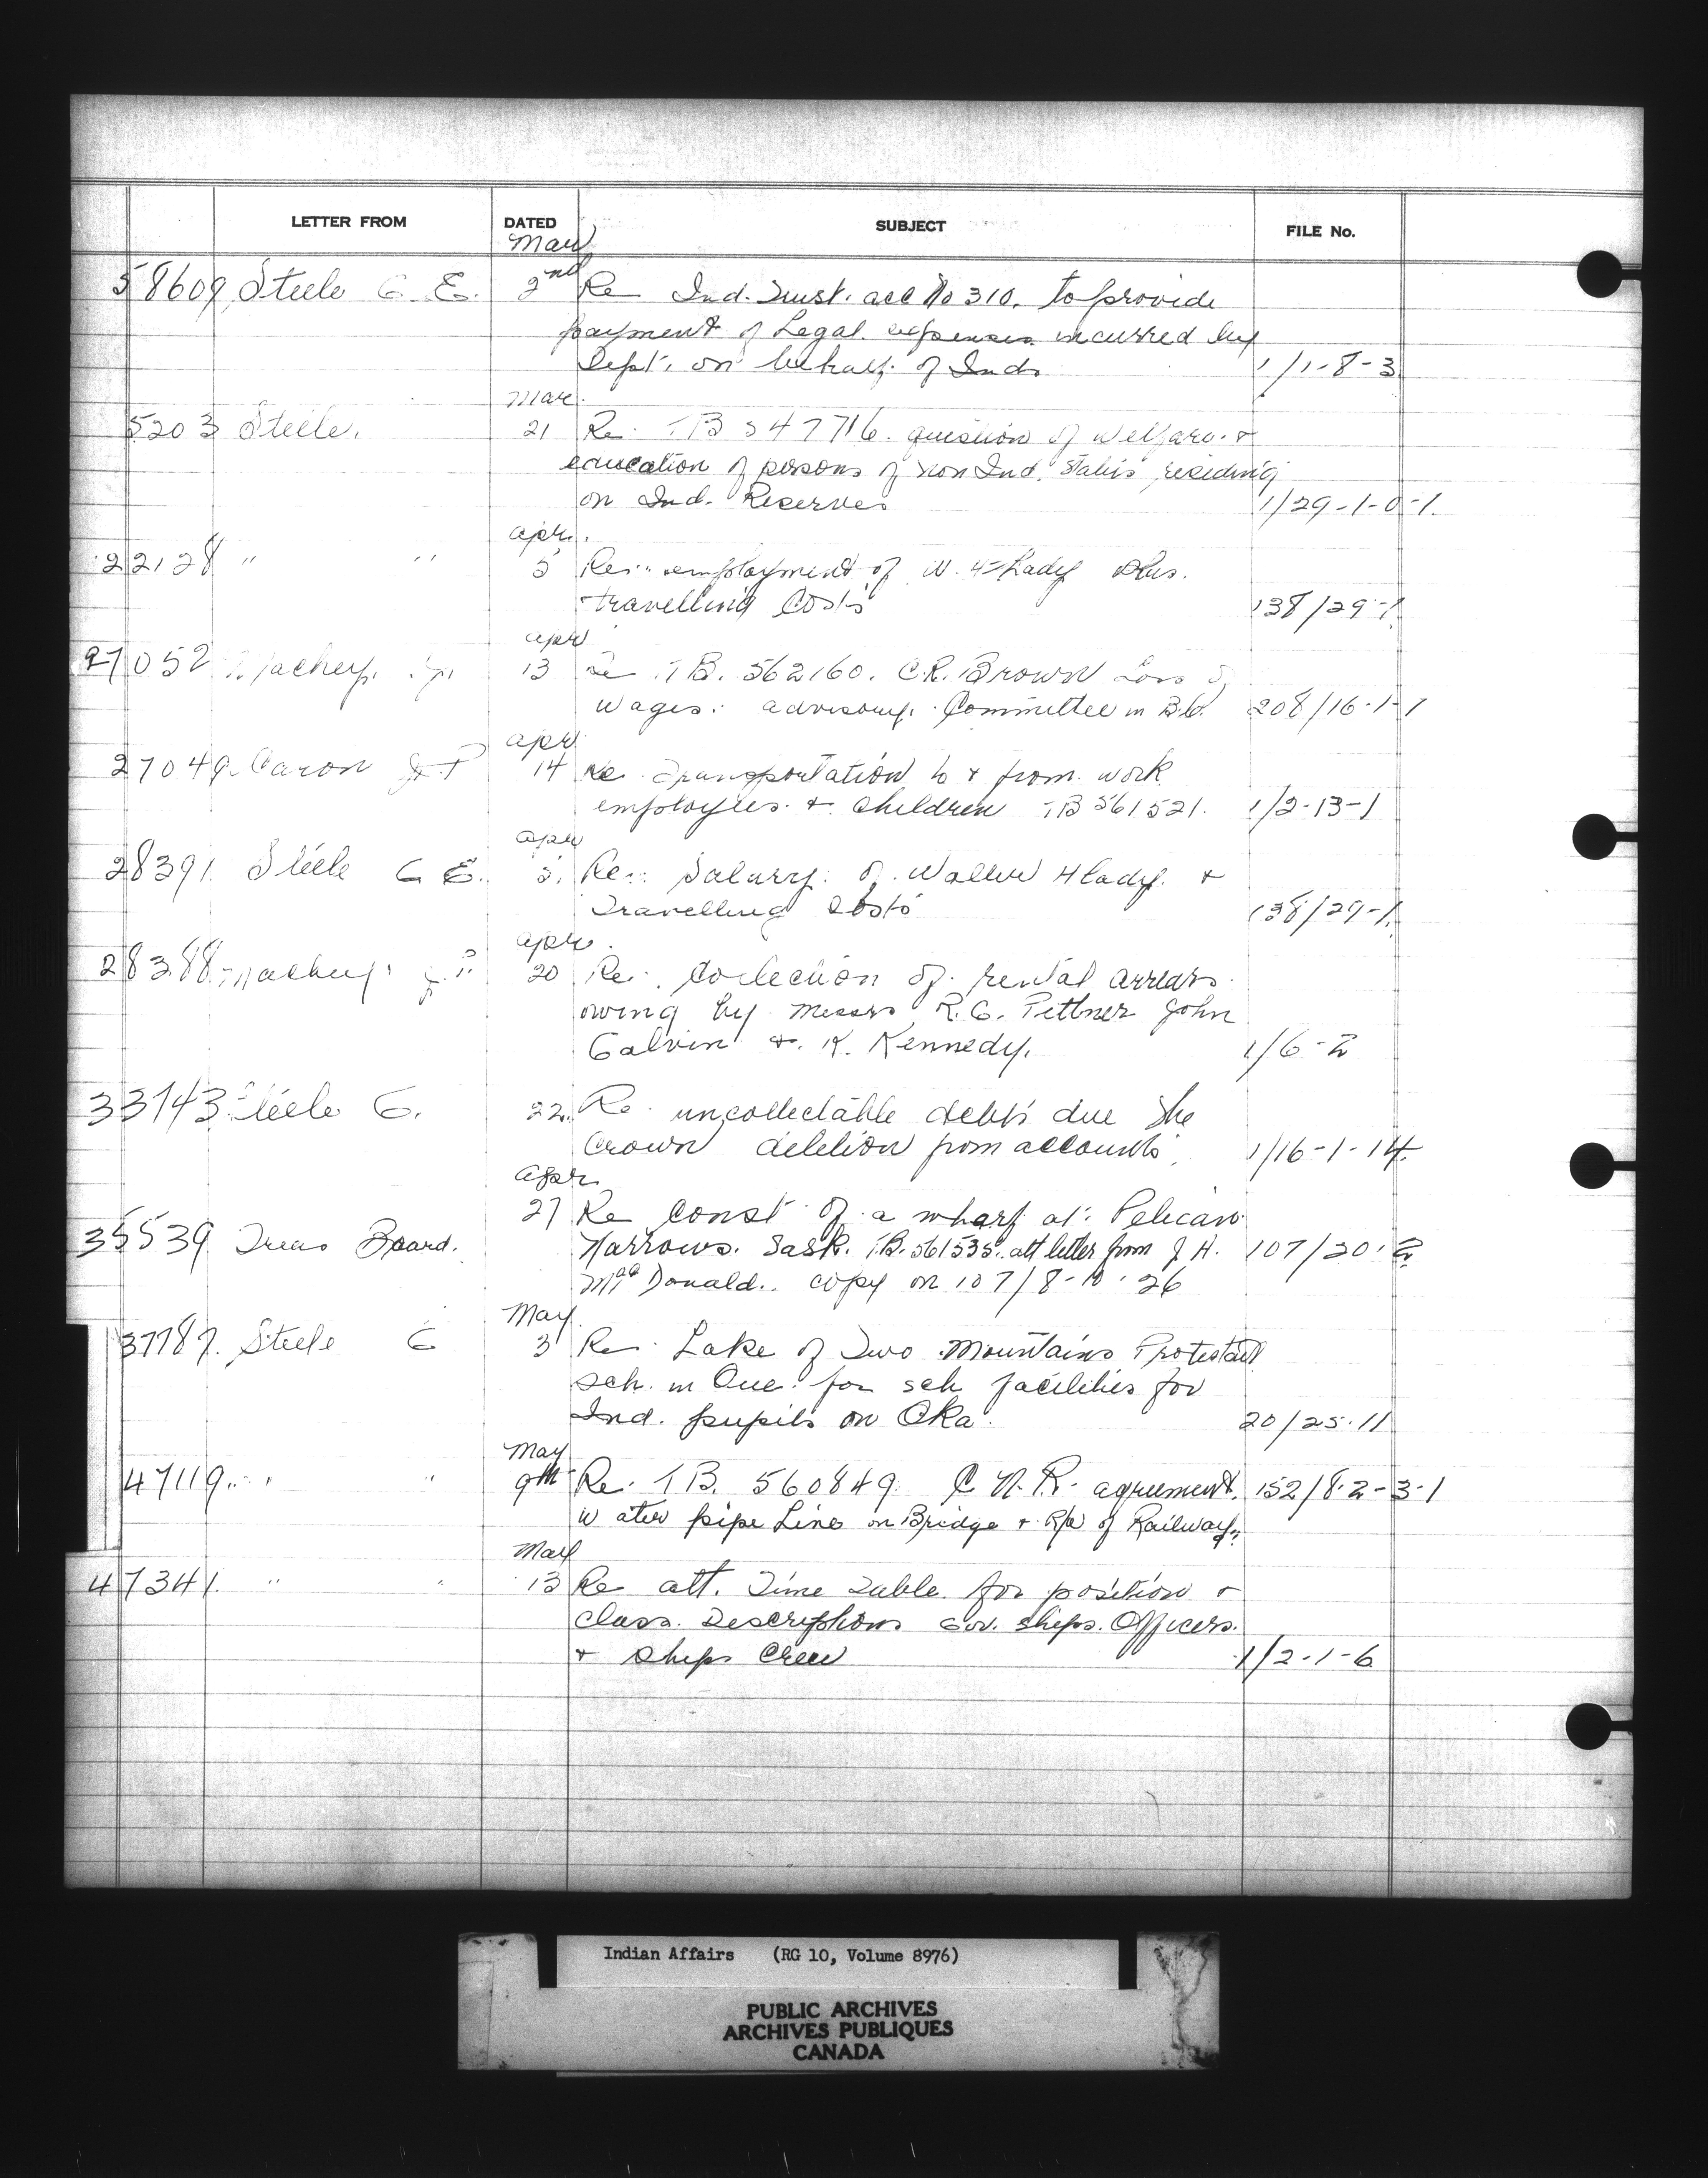 LETTER FROM DATED SUBJECT FILE No.
Mar
58609 Steele G E. 2nd Re Ind. Trust. acc No 310. to provide
payment of Legal expenses incurred by
Dept. on behalf of Inds 1/1-8-3
Mar.
5203 Steele. 21 Re: TB 547716. question of welfare. &
education of persons of non Ind. Status residing
on Ind. Reserves 1/29-1-0-1.
apr.
22128 " " 5 Re: employment of W. Hlady plus.
travelling Costs 138/29-1.
apr
27052 Mackey. 13 Re TB. 562160. C.R. Brown Loss of
wages. advisory. Committee in B.C. 208/16-1-1
apr.
27049. Caron 14 Re Transportation to & from work
employees. & children TB 561521. 1/2-13-1
apr
28391 Steele G E. 5. Re: Salary. of. Walter Hlady. &
Travelling Costs 138/29-1.
apr.
28388 Mackey. 20 Re. Collection of rental arrears.
owing by messrs R.G. Pettner John
Galvin &. K. Kennedy. 1/6-2
33143 Steele G. 22. Re uncollectable debts due the
Crown deletion from accounts. 1/16-1-14.
apr.
35539 Treas Board. 27 Re Const of a wharf at Pelican
Narrows. Sask. TB. 561535. att letter from J H. 107/20-2
MacDonald. copy on 107/8-10-26
May.
37787. Steele G 3 Re Lake of Two Mountains Protestant
sch. in Que. for sch facilities for
Ind. pupils on Oka. 20/25-11
May
47119. " " 9th Re. TB. 560849 C.N.R. agreement. 152/8-2-3-1
water pipe Line on Bridge & R/W of Railway.
May
47341. " " 13 Re att. Time Table for position &
Class. Descriptions Gov. Ships. Officers.
& Ships Crew 1/2-1-6
Indian Affairs (RG 10, Volume 8976)
PUBLIC ARCHIVES
ARCHIVES PUBLIQUES
CANADA